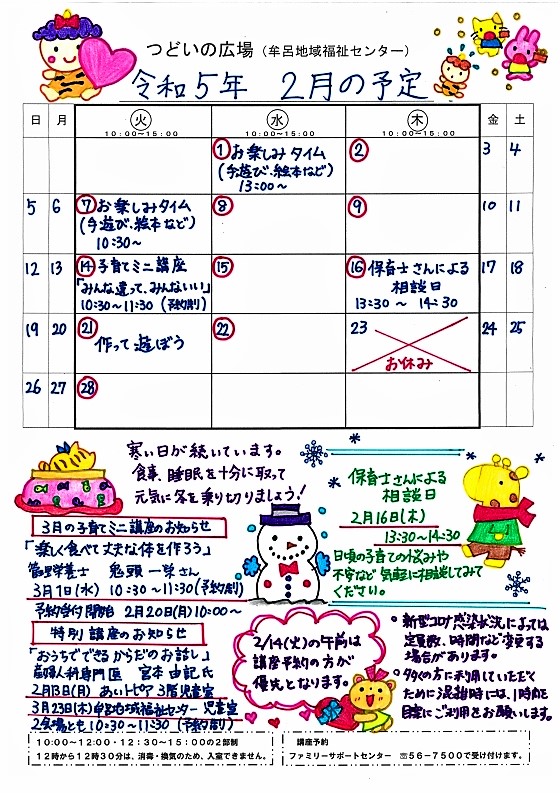 つどいの広場（牟呂地域福祉センター）
令和5年 2月の予定
日 月 火 水 木 金 土
10:00~15:00 10:00~15:00 10:00~15:00
① お楽しみタイム
(手遊び、絵本など)
13:00～
② 3 4
5 6 ⑦ お楽しみタイム
(手遊び、絵本など)
10:30～
⑧ ⑨ 10 11
12 13 ⑭ 子育てミニ講座
「みんな違って、みんないい」
10:30～11:30 (予約制)
⑮ ⑯ 保育士さんによる
相談日
13:30 ～ 14:30
17 18
19 20 ㉑
作って遊ぼう
㉒ 23
お休み
24 25
26 27 ㉘
寒い日が続いています。
食事、睡眠を十分に取って
元気に冬を乗り切りましょう!
3月の子育てミニ講座のお知らせ
「楽しく食べて丈夫な体を作ろう」
管理栄養士 鬼頭 一栄さん
3月1日(水) 10:30～11:30(予約制)
予約受付開始 2月20日(月)10:00～
特別講座のお知らせ
「おうちでできるからだのお話し」
産婦人科専門医 宮本由記氏
2月13日(月) あいトピア 3階児童室
3月23日(木)牟呂地域福祉センター 児童室
2会場とも10:30～11:30 (予約制)
保育士さんによる
相談日
2月16日(木)
13:30～14:30
日頃の子育ての悩みや
不安など 気軽に相談してみて
ください。
2/14(火)の午前は
講座予約の方が
優先となります。
○新型コロナ感染状況によっては
定員数、時間など変更する
場合があります。
○多くの方に利用していただく
ために混雑時には、1時間を
目安にご利用をお願いします。
10:00~12:00・12:30~15:00の2部制
12時から12時30分は、消毒・換気のため、入室できません。
講座予約
ファミリーサポートセンター ☏56-7500で受け付けます。